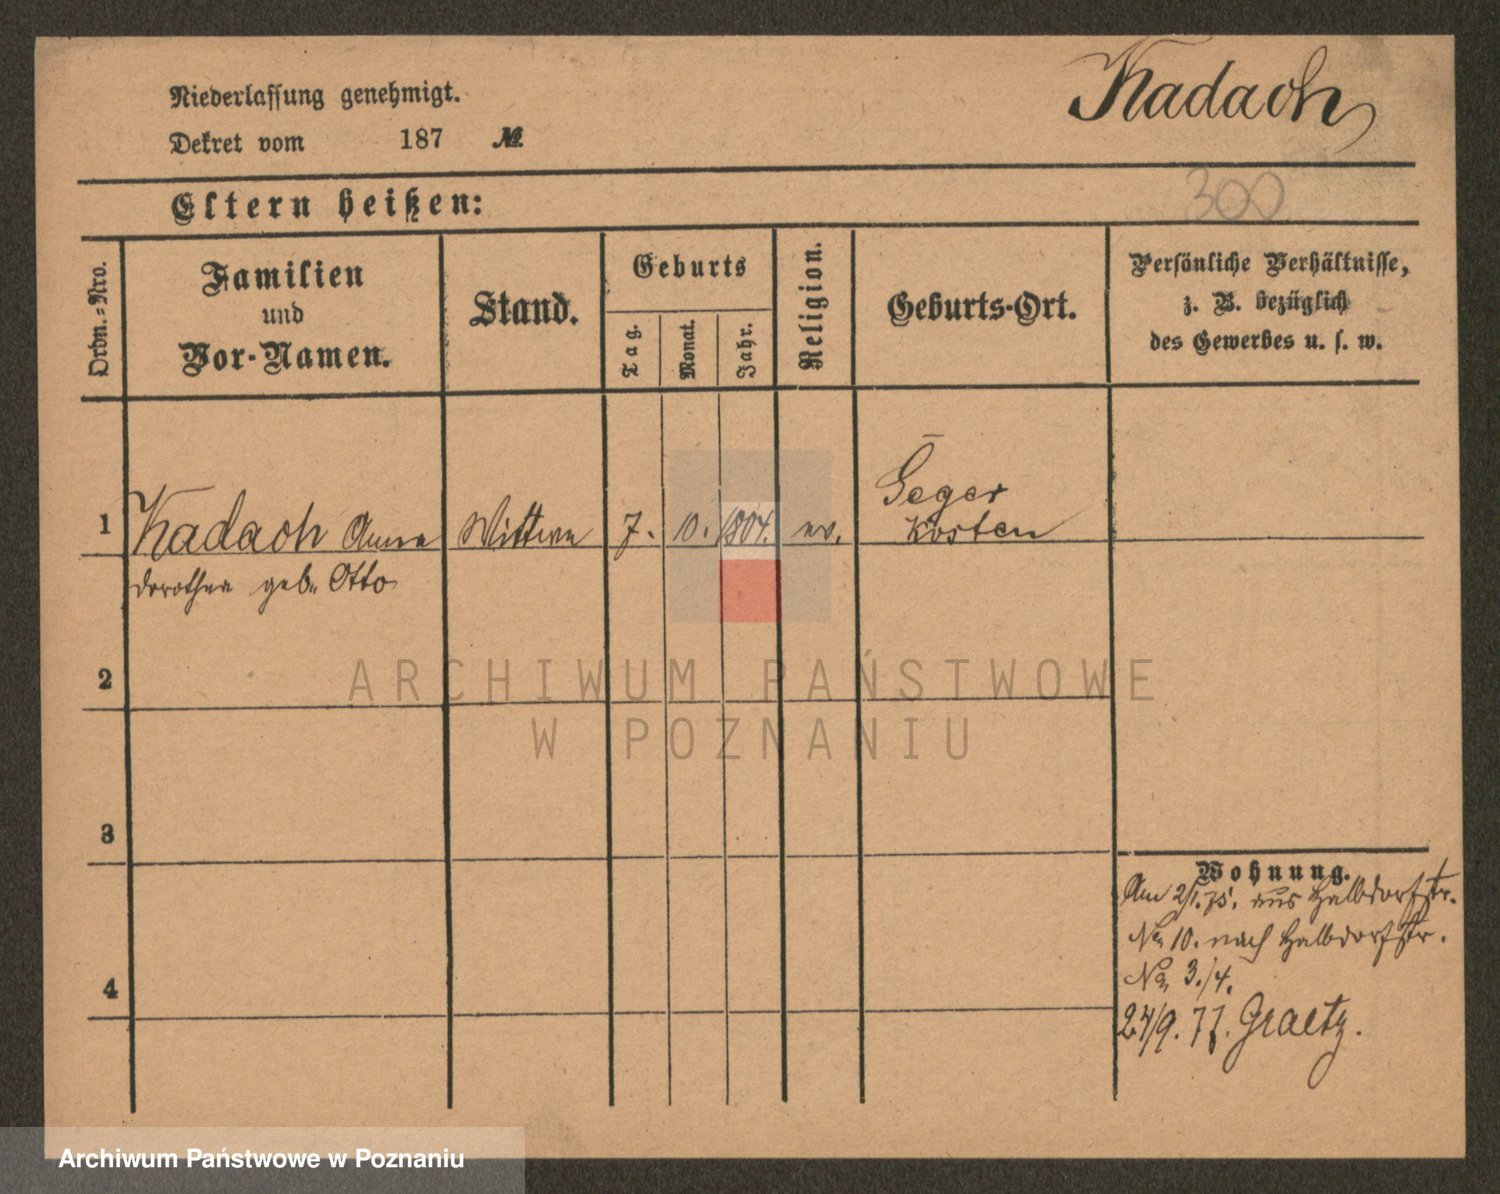 Kadach
Niederlassung genehmigt.
Dekret vom 187 №
300
Eltern heißen:
Ordn.-Nro.
Familien
und
Vor-Namen.
Stand.
Geburts
Tag.
Monat.
Jahr.
Religion.
Geburts-Ort.
Persönliche Verhältnisse,
z. B. bezüglich
des Gewerbes u. s. w.
1 Kadach Anna Wittwe 7. 10. 1804. ev. Geger
Kosten
Dorothea geb. Otto
2
3
4
Wohnung.
Am 2/1. 75. aus Halbdorfstr.
No 10. nach Halbdorfstr.
No 3./4.
24/9. 77. Graetz.
ARCHIWUM PAŃSTWOWE
W POZNANIU
Archiwum Państwowe w Poznaniu